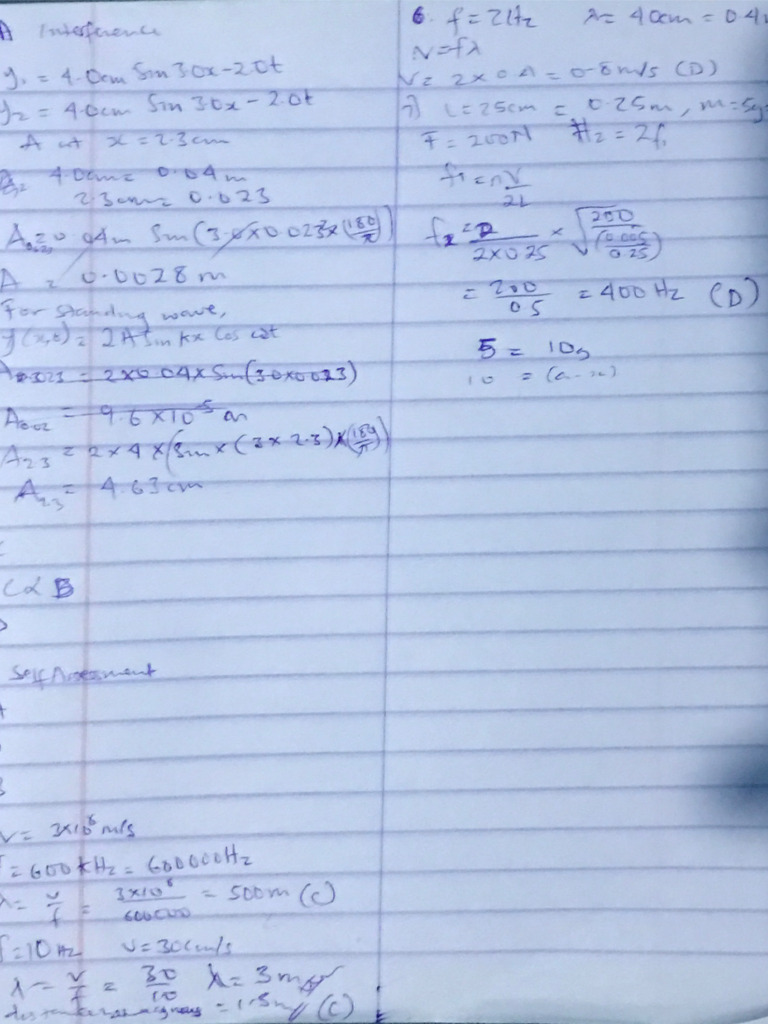 A Interference
y₁ = 4.0cm Sin 3.0x - 2.0t
y₂ = 4.0cm Sin 3.0x - 2.0t
A at x = 2.3cm
4.0cm = 0.04m
2.3cm = 0.023
= 0.04m Sin (3.0x0.023x(180/π))
A = 0.0028m
For standing wave,
y(x,t) = 2A Sin kx Cos ωt
= 2x0.04x Sin(3.0x0.023)
= 9.6 x10⁻⁵ m
A2.3 = 2 x 4 x (Sin x (3 x 2.3) x (180/π))
A2.3 = 4.63cm
C & B
Self Assessment
V = 3x10⁸ m/s
= 600 kHz = 600000Hz
λ = v/f = 3x10⁸/600000 = 500m (C)
f = 10Hz V = 30cm/s
λ = v/f = 30/10 λ = 3m
= 1.5m (C)
6. f = 2Hz λ = 40cm = 0.4
V = fλ
V = 2 x 0.4 = 0.8m/s (D)
7) L = 25cm = 0.25m, m = 5g
F = 200N = 2f₁
f₁ = nV/2L
f₂ = 2/2x0.25 x √(200/(0.005/0.25))
= 200/0.5 = 400Hz (D)
5 = 10s
10 =